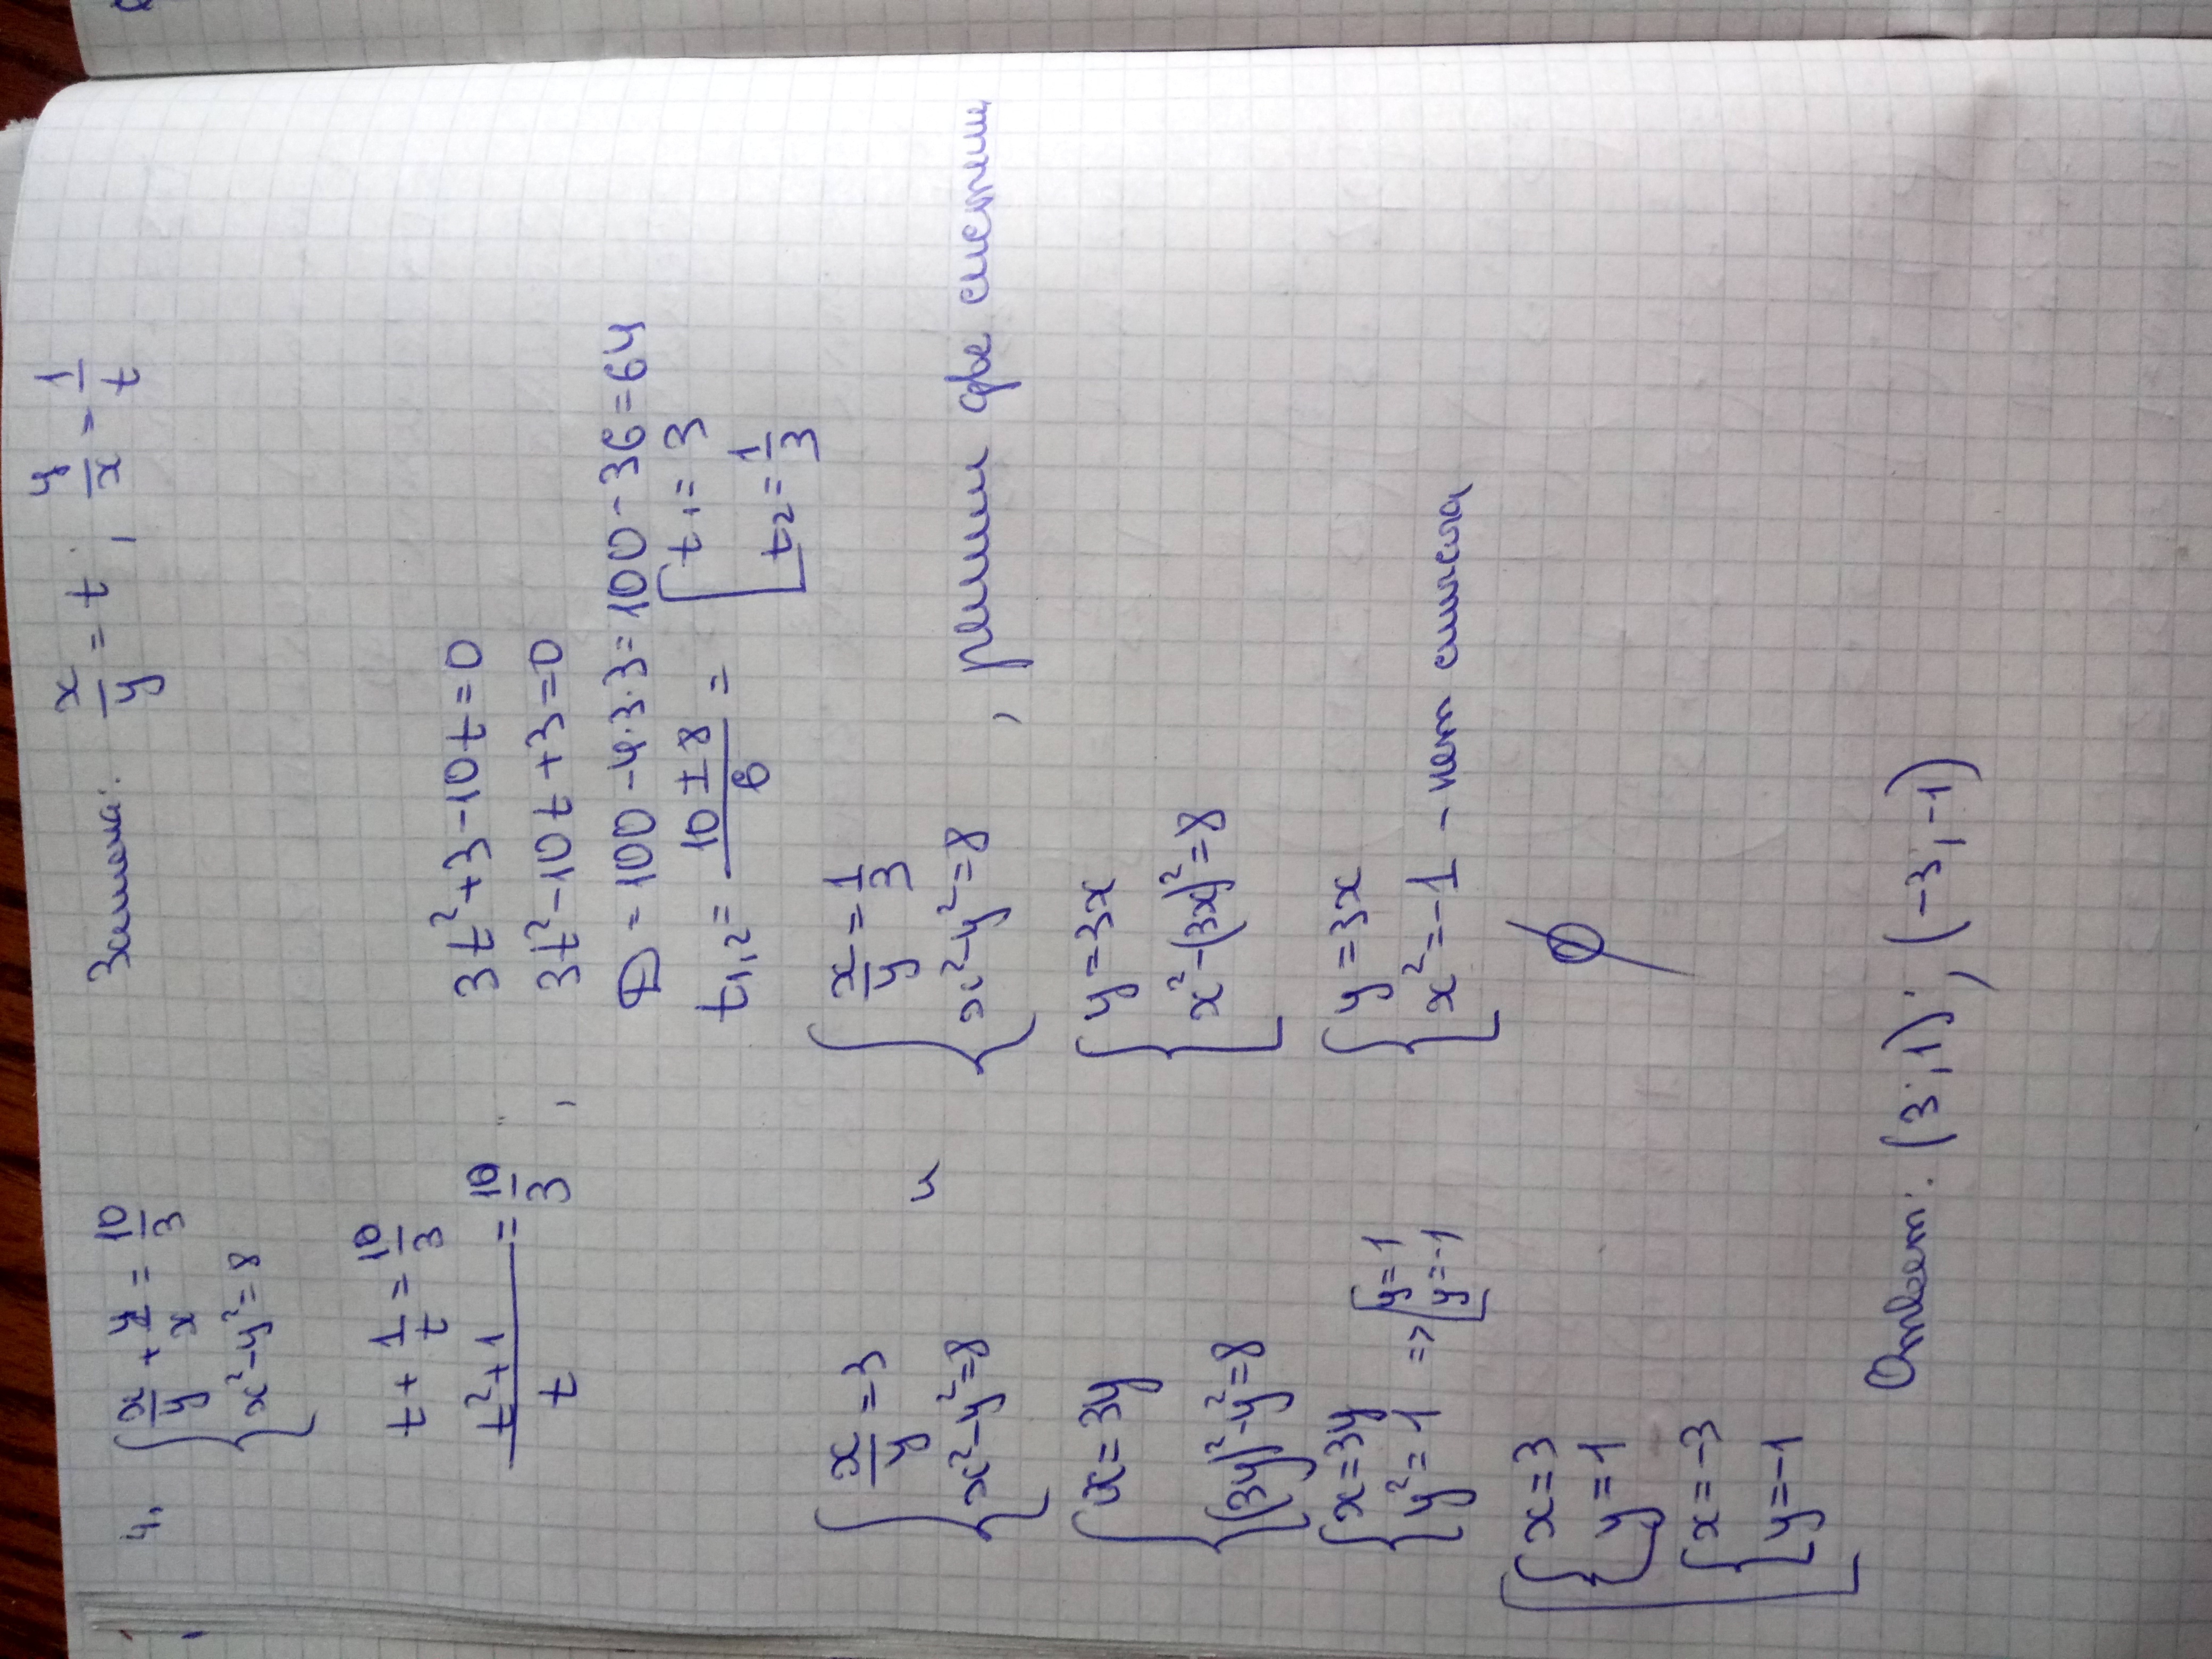 4. { x/y + y/x = 10/3 Замена: x/y = t ; y/x = 1/t
{ x² - y² = 8
t + 1/t = 10/3
(t² + 1)/t = 10/3 , 3t² + 3 - 10t = 0
3t² - 10t + 3 = 0
D = 100 - 4·3·3 = 100 - 36 = 64
t1,2 = (10 ± 8)/6 = [ t1 = 3
[ t2 = 1/3
{ x/y = 3 и { x/y = 1/3
{ x² - y² = 8 { x² - y² = 8 , решим две системы
{ x = 3y { y = 3x
{ (3y)² - y² = 8 { x² - (3x)² = 8
{ x = 3y { y = 3x
{ y² = 1 => [ y = 1 { x² = -1 - нет смысла
[ y = -1
[ { x = 3 ∅
{ y = 1
{ x = -3
{ y = -1
Ответ: (3; 1); (-3; -1)